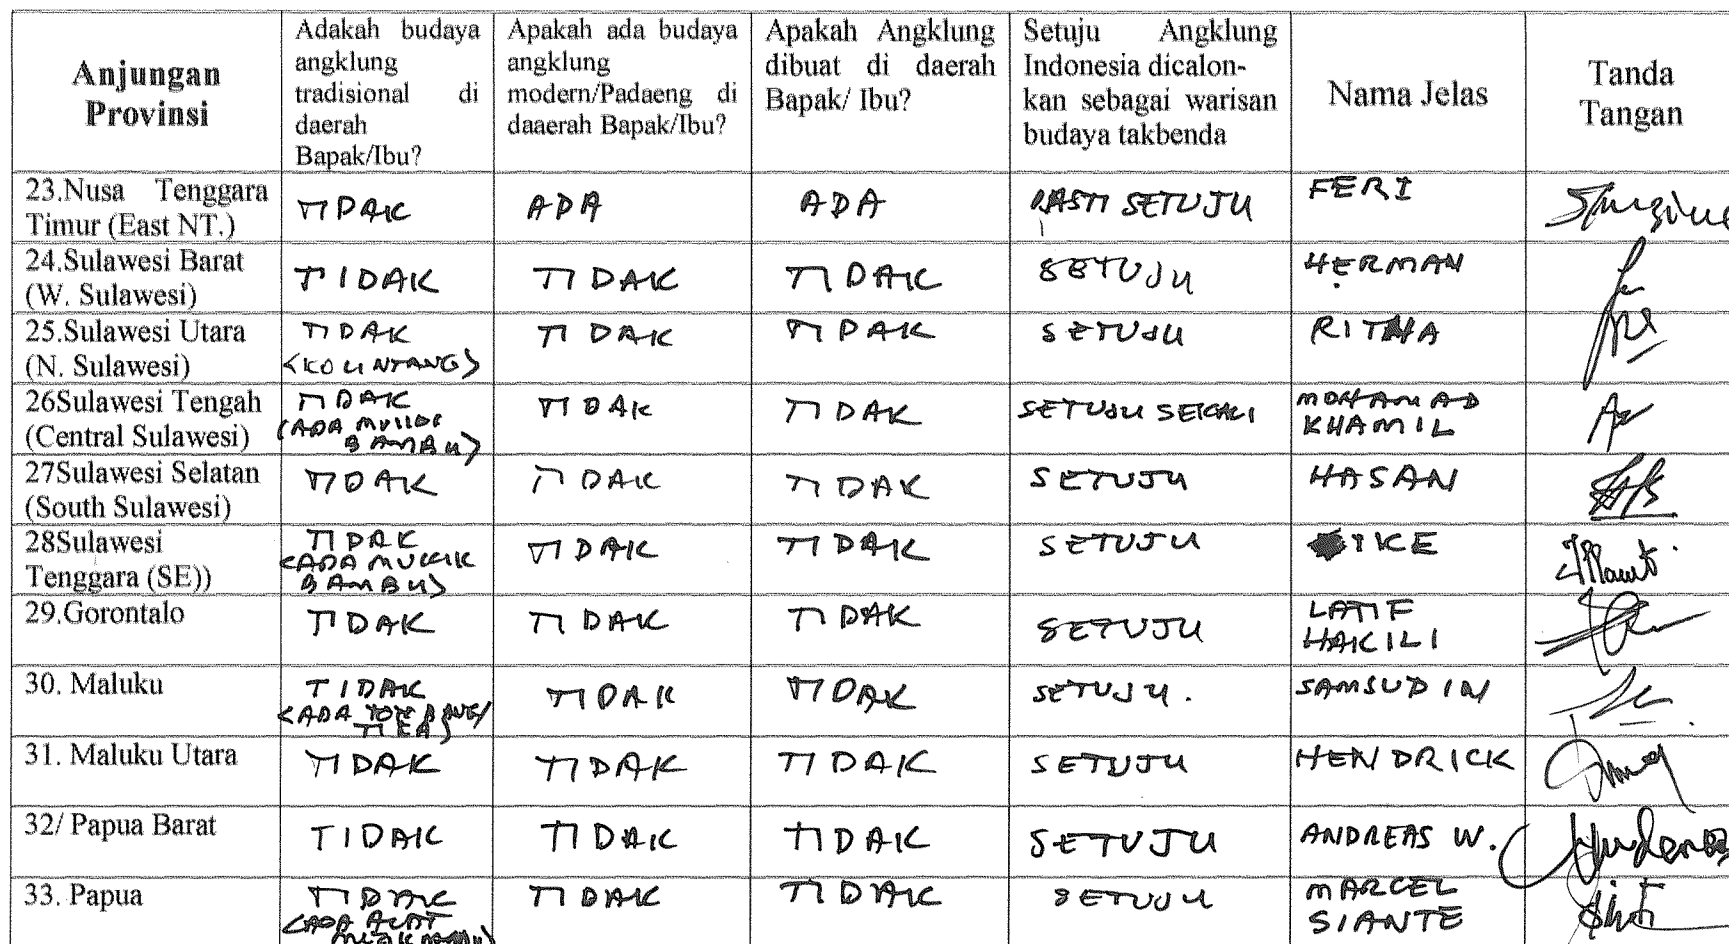 Anjungan Provinsi
Adakah budaya angklung tradisional di daerah Bapak/Ibu?
Apakah ada budaya angklung modern/Padaeng di daaerah Bapak/Ibu?
Apakah Angklung dibuat di daerah Bapak/ Ibu?
Setuju Angklung Indonesia dicalon-kan sebagai warisan budaya takbenda
Nama Jelas
Tanda Tangan
23.Nusa Tenggara Timur (East NT.)
TIDAK
ADA
ADA
PASTI SETUJU
FERI
24.Sulawesi Barat (W. Sulawesi)
TIDAK
TIDAK
TIDAK
SETUJU
HERMAN
25.Sulawesi Utara (N. Sulawesi)
TIDAK (KOLINTANG)
TIDAK
TIDAK
SETUJU
RITHA
26Sulawesi Tengah (Central Sulawesi)
TIDAK (ADA BAMBU)
TIDAK
TIDAK
SETUJU SEKALI
MOHAMAD KHAMIL
27Sulawesi Selatan (South Sulawesi)
TIDAK
TIDAK
TIDAK
SETUJU
HASAN
28Sulawesi Tenggara (SE))
TIDAK (ADA MUSIK BAMBU)
TIDAK
TIDAK
SETUJU
IKE
29.Gorontalo
TIDAK
TIDAK
TIDAK
SETUJU
LATIF HAKILI
30. Maluku
TIDAK (ADA
TIDAK
TIDAK
SETUJU.
SAMSUDIN
31. Maluku Utara
TIDAK
TIDAK
TIDAK
SETUJU
HENDRICK
32/ Papua Barat
TIDAK
TIDAK
TIDAK
SETUJU
ANDREAS W.
33. Papua
TIDAK (ADA ALAT
TIDAK
TIDAK
SETUJU
MARCEL SIANTE